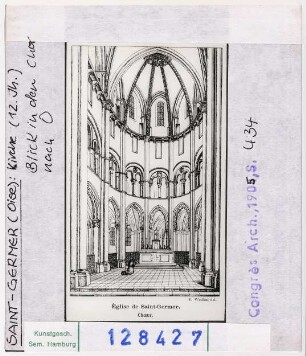 SAINT-GERMER (OISE): Kirche (12. Jh.)
Blick in den Chor
nach O
Église de Saint-Germer.
Chœur.
Congrès Arch., 1905, S. 434
Kunstgesch.
Sem. Hamburg
128427